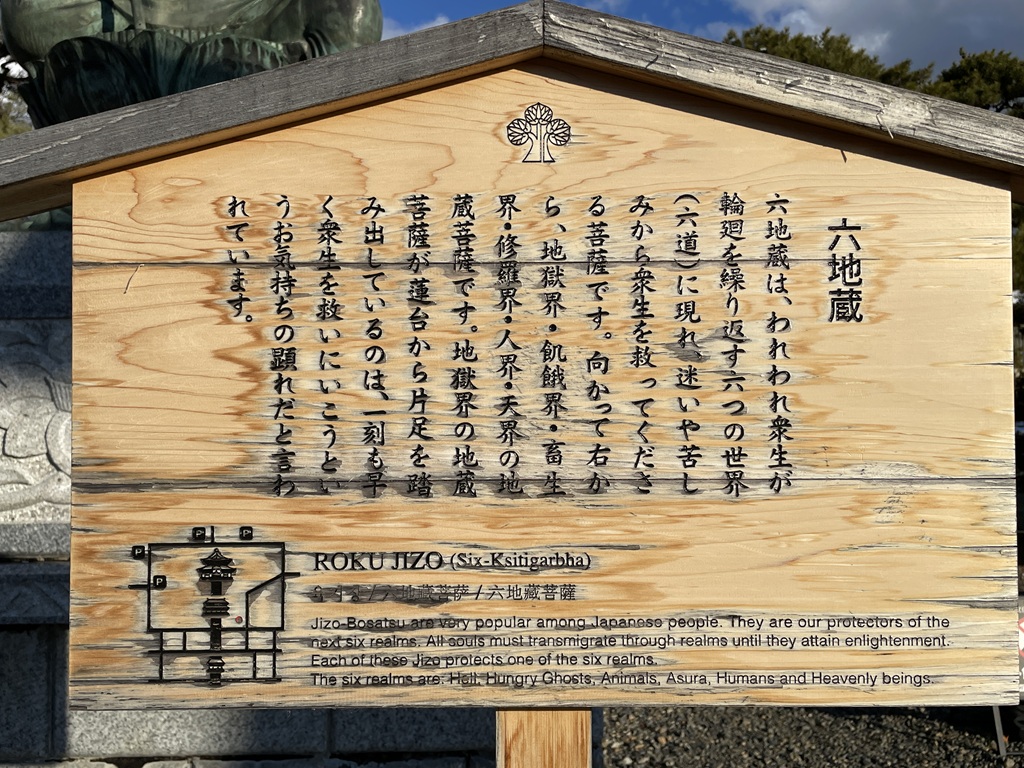 六地蔵
六地蔵は、われわれ衆生が
輪廻を繰り返す六つの世界
(六道)に現れ、迷いや苦し
みから衆生を救ってくださ
る菩薩です。向かって右か
ら、地獄界・飢餓界・畜生
界・修羅界・人界・天界の地
蔵菩薩です。地獄界の地蔵
菩薩が蓮台から片足を踏
み出しているのは、一刻も早
く衆生を救いにいこうとい
うお気持ちの顕れだと言わ
れています。
P P
P
P
ROKU JIZO (Six-Ksitigarbha)
地藏菩萨 / 六地藏菩薩
Jizo-Bosatsu are very popular among Japanese people. They are our protectors of the
next six realms. All souls must transmigrate through realms until they attain enlightenment.
Each of these Jizo protects one of the six realms.
The six realms are: Hell, Hungry Ghosts, Animals, Asura, Humans and Heavenly beings.